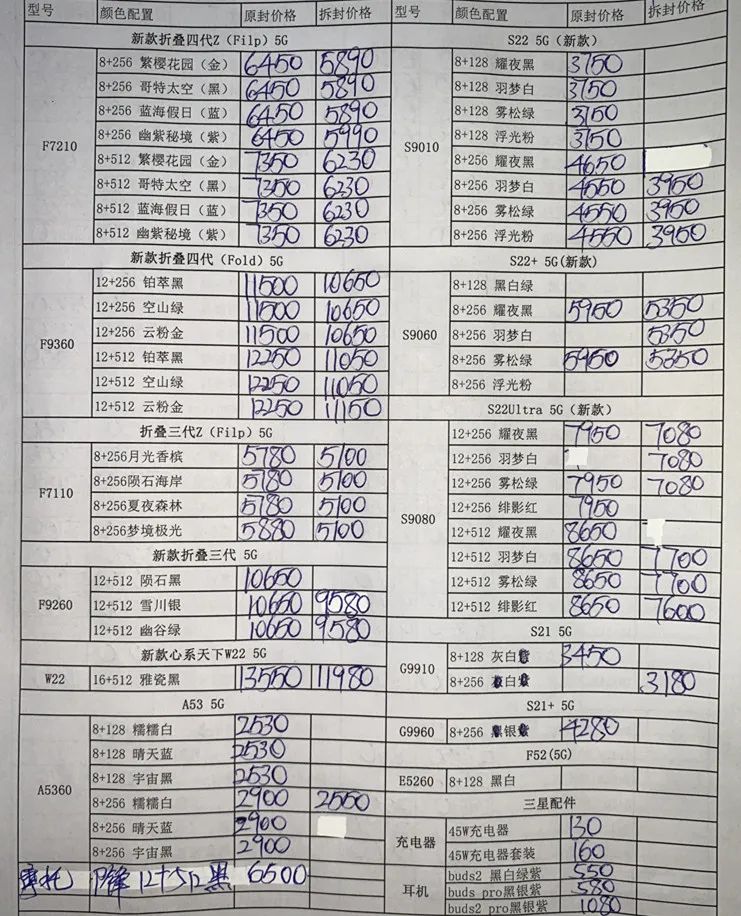 型号 颜色配置 原封价格 拆封价格
新款折叠四代Z（Filp）5G
F7210
8+256 繁樱花园（金） 6450 5890
8+256 哥特太空（黑） 6450 5890
8+256 蓝海假日（蓝） 6450 5890
8+256 幽紫秘境（紫） 6450 5990
8+512 繁樱花园（金） 7350 6230
8+512 哥特太空（黑） 7350 6230
8+512 蓝海假日（蓝） 7350 6230
8+512 幽紫秘境（紫） 7350 6230
新款折叠四代（Fold）5G
F9360
12+256 铂萃黑 11500 10650
12+256 空山绿 11500 10650
12+256 云粉金 11500 10650
12+512 铂萃黑 12250 11050
12+512 空山绿 12250 11050
12+512 云粉金 12250 11150
折叠三代Z（Filp）5G
F7110
8+256月光香槟 5780 5100
8+256陨石海岸 5780 5100
8+256夏夜森林 5780 5100
8+256梦境极光 5880 5100
新款折叠三代 5G
F9260
12+512 陨石黑 10650
12+512 雪川银 10650 9580
12+512 幽谷绿 10650 9580
新款心系天下W22 5G
W22 16+512 雅瓷黑 13550 11980
A53 5G
A5360
8+128 糯糯白 2530
8+128 晴天蓝 2530
8+128 宇宙黑 2530
8+256 糯糯白 2900 2550
8+256 晴天蓝 2900
8+256 宇宙黑 2900
摩托 12+512 黑 6500
型号 颜色配置 原封价格 拆封价格
S22 5G（新款）
S9010
8+128 耀夜黑 3750
8+128 羽梦白 3750
8+128 雾松绿 3750
8+128 浮光粉 3750
8+256 耀夜黑 4650
8+256 羽梦白 4550 3950
8+256 雾松绿 4550 3950
8+256 浮光粉 4550 3950
S22+ 5G(新款)
S9060
8+128 黑白绿
8+256 耀夜黑 5950 5350
8+256 羽梦白 5350
8+256 雾松绿 5950 5350
8+256 浮光粉
S22Ultra 5G（新款）
S9080
12+256 耀夜黑 7950 7080
12+256 羽梦白 7080
12+256 雾松绿 7950 7080
12+256 绯影红 7950
12+512 耀夜黑 8650
12+512 羽梦白 8650 7700
12+512 雾松绿 8650 7700
12+512 绯影红 8650 7600
S21 5G
G9910
8+128 灰白 3450
8+256 白 3180
S21+ 5G
G9960 8+256 银 4280
F52(5G)
E5260 8+128 黑白
三星配件
充电器
45W充电器 130
45W充电器套装 160
耳机
buds2 黑白绿紫 550
buds pro黑银紫 580
buds2 pro黑银紫 1080